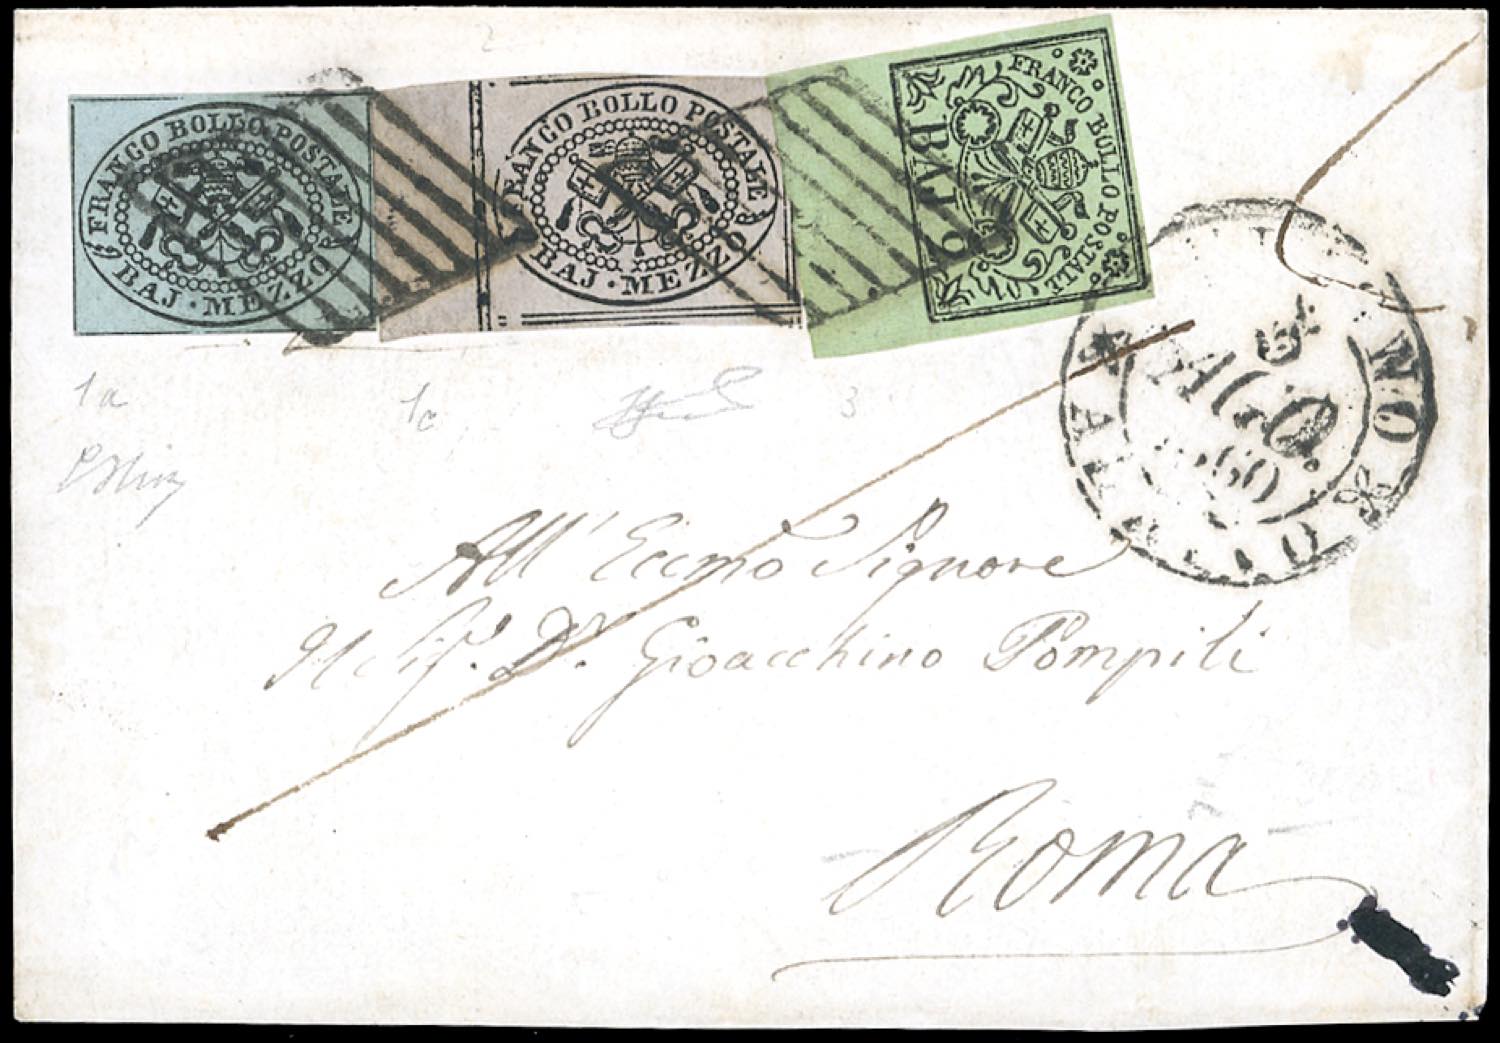 FRANCO BOLLO POSTALE
BAJ · MEZZO
FRANCO BOLLO POSTALE
BAJ · MEZZO
FRANCO BOLLO POSTALE
BAJ. 2
1a
1c
3
AGO
60
All' Eccmo Signore
Il Sig. Dr. Gioacchino Pompili
Roma